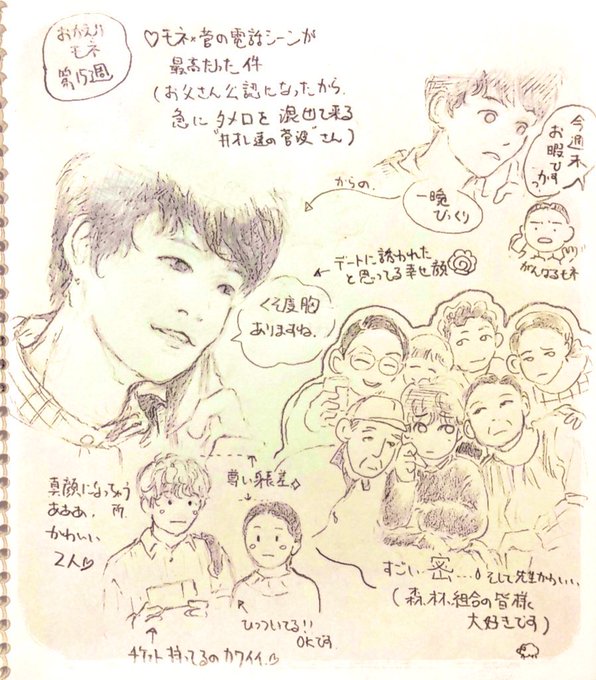 おかえり
モネ
第15週
♡モネ×菅の電話シーンが
最高だった件
(お父さん公認になったから
急にタメ口を混ぜて来る
さん)
今週末
お暇ですっ
かっ
からの、
一瞬
びっくり
がんばるモネ
←デートに誘われた
と思ってる幸せ顔
くそ度胸
ありますね。
尊い身長差
真顔になっちゃう
あああ、
かわいい
2人♡
ひっついてる!!
OKです。
チケット持ってるのカワイイ♡
すごい…密…。そして先生かわいい
(森林組合の皆様
大好きです)